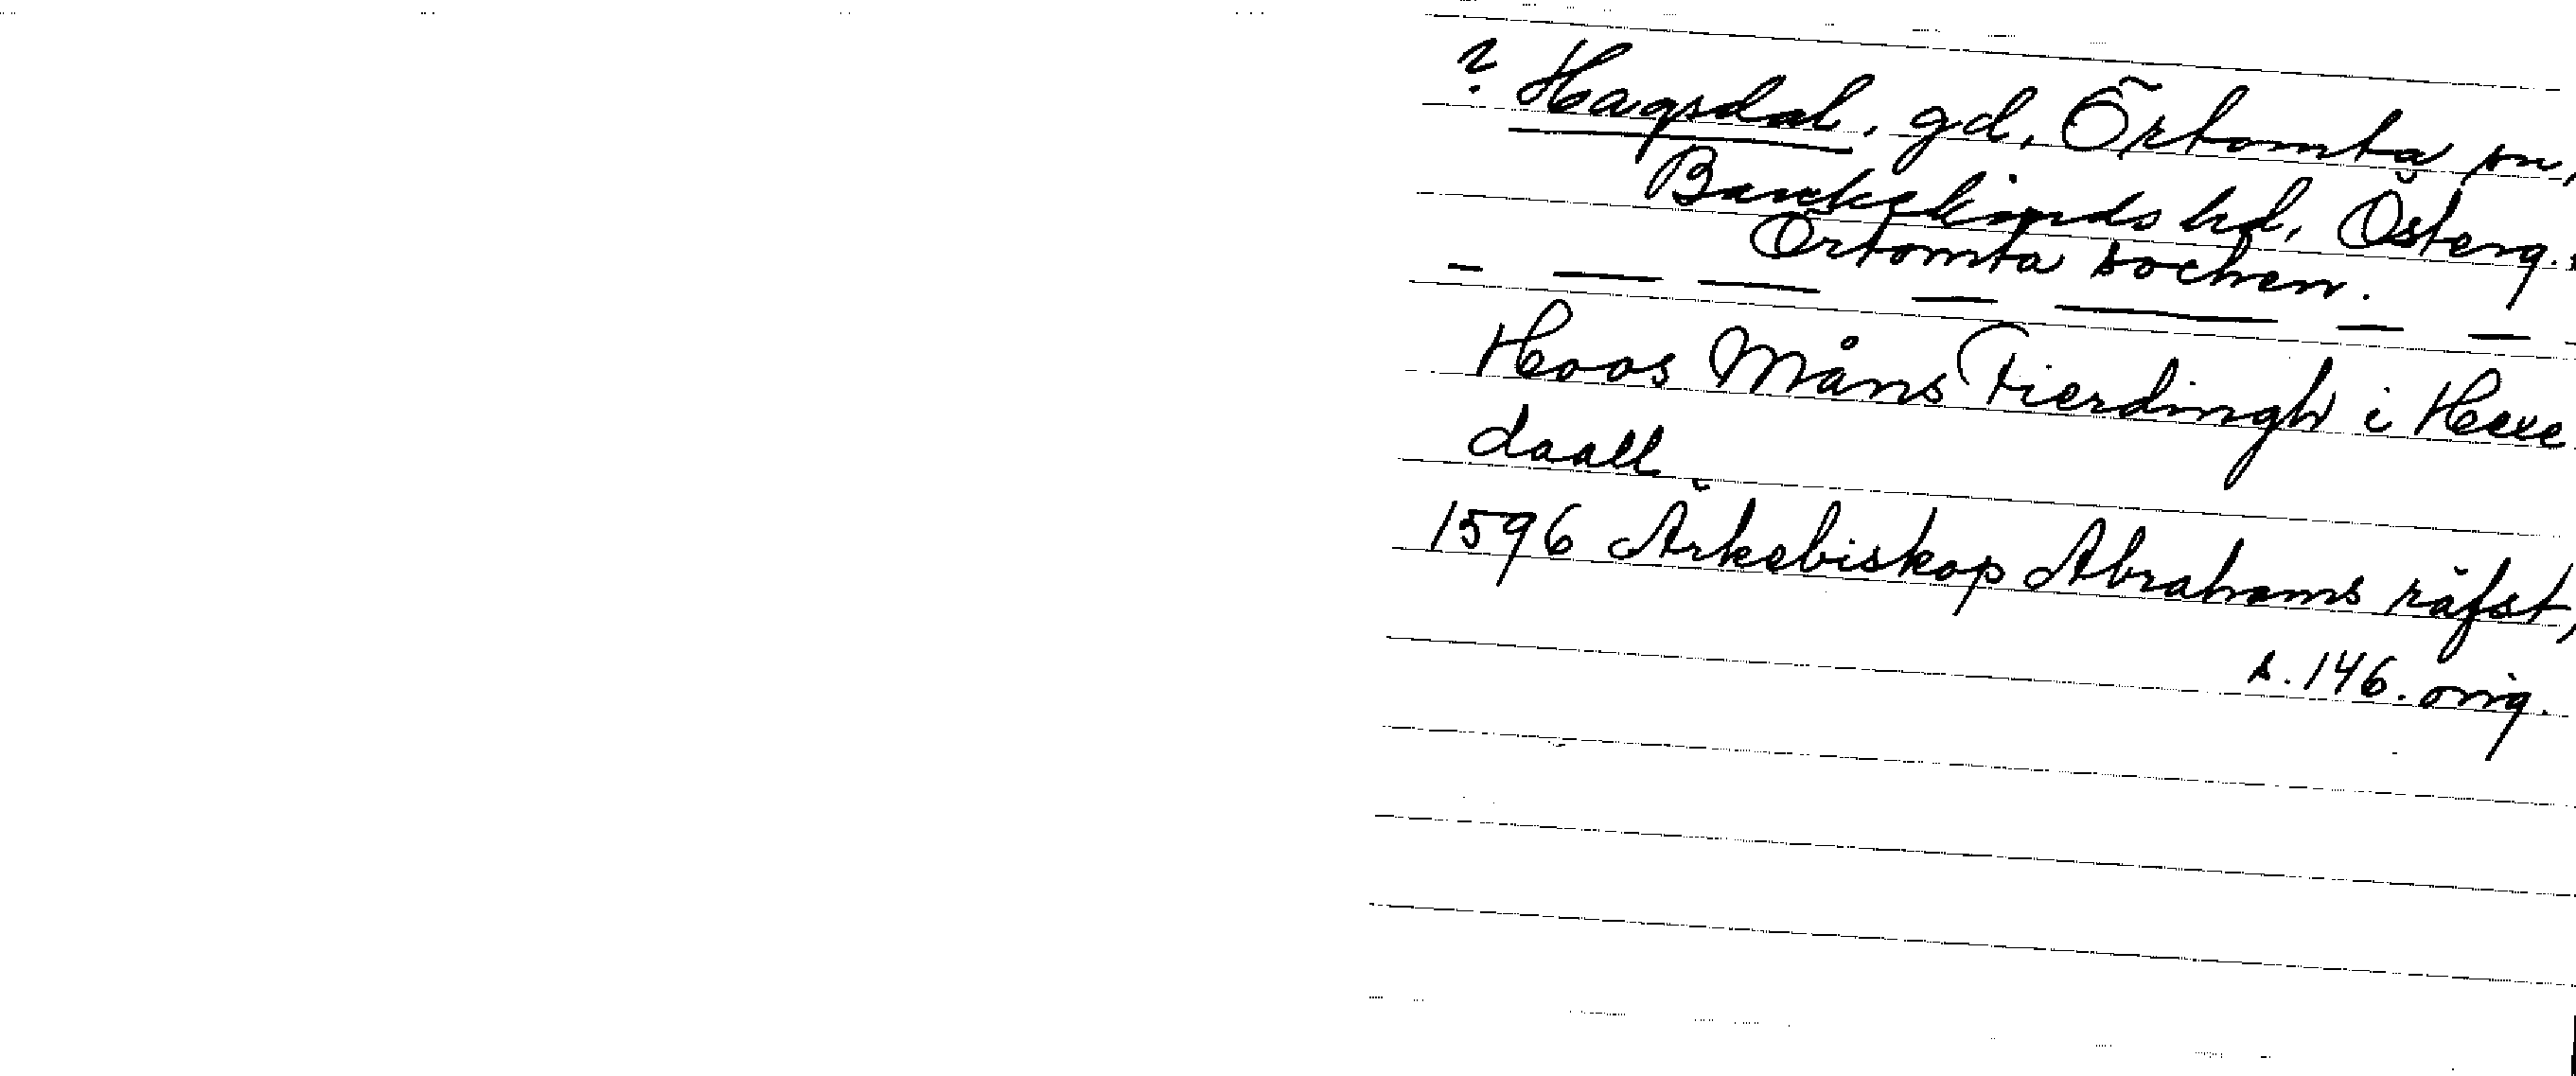 ? Hagsdal, gd, Örtomta sn,
Bankekinds hd, Österg.
Örtomta sochen.
Hoos Måns Fierdingh i Hexe
daall
1596 Ärkebiskop Abrahams räfst,
s. 146. orig.